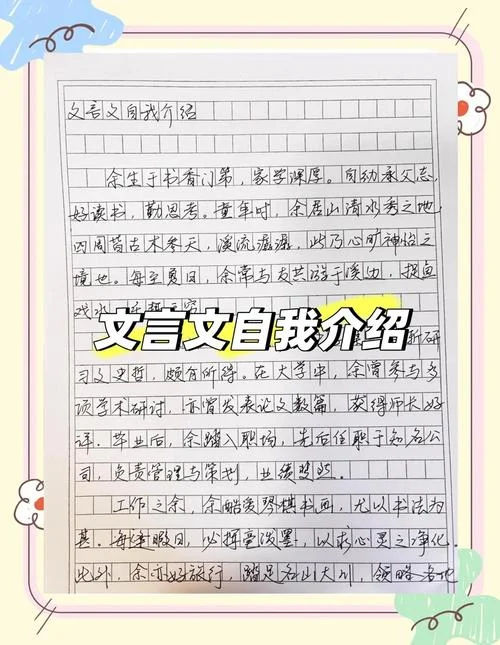 文言文自我介绍
余生于书香门第，家学深厚。自幼承父志，
好读书，勤思考。童年时，余居山清水秀之地，
四周皆古木参天，溪流潺潺，此乃心旷神怡之
境也。每至夏日，余常与友共游于溪边，捉鱼
戏水，
文言文自我介绍
研
习文史哲，颇有所得。在大学中，余曾参与多
项学术研讨，亦曾发表论文数篇，获得师长好
评。毕业后，余踏入职场，先后任职于知名公
司，负责管理与策划，业绩斐然。
工作之余，余酷爱琴棋书画，尤以书法为
甚。每逢暇日，必挥毫泼墨，以求心灵之净化。
此外，余亦好旅行，踏足名山大川，领略各地